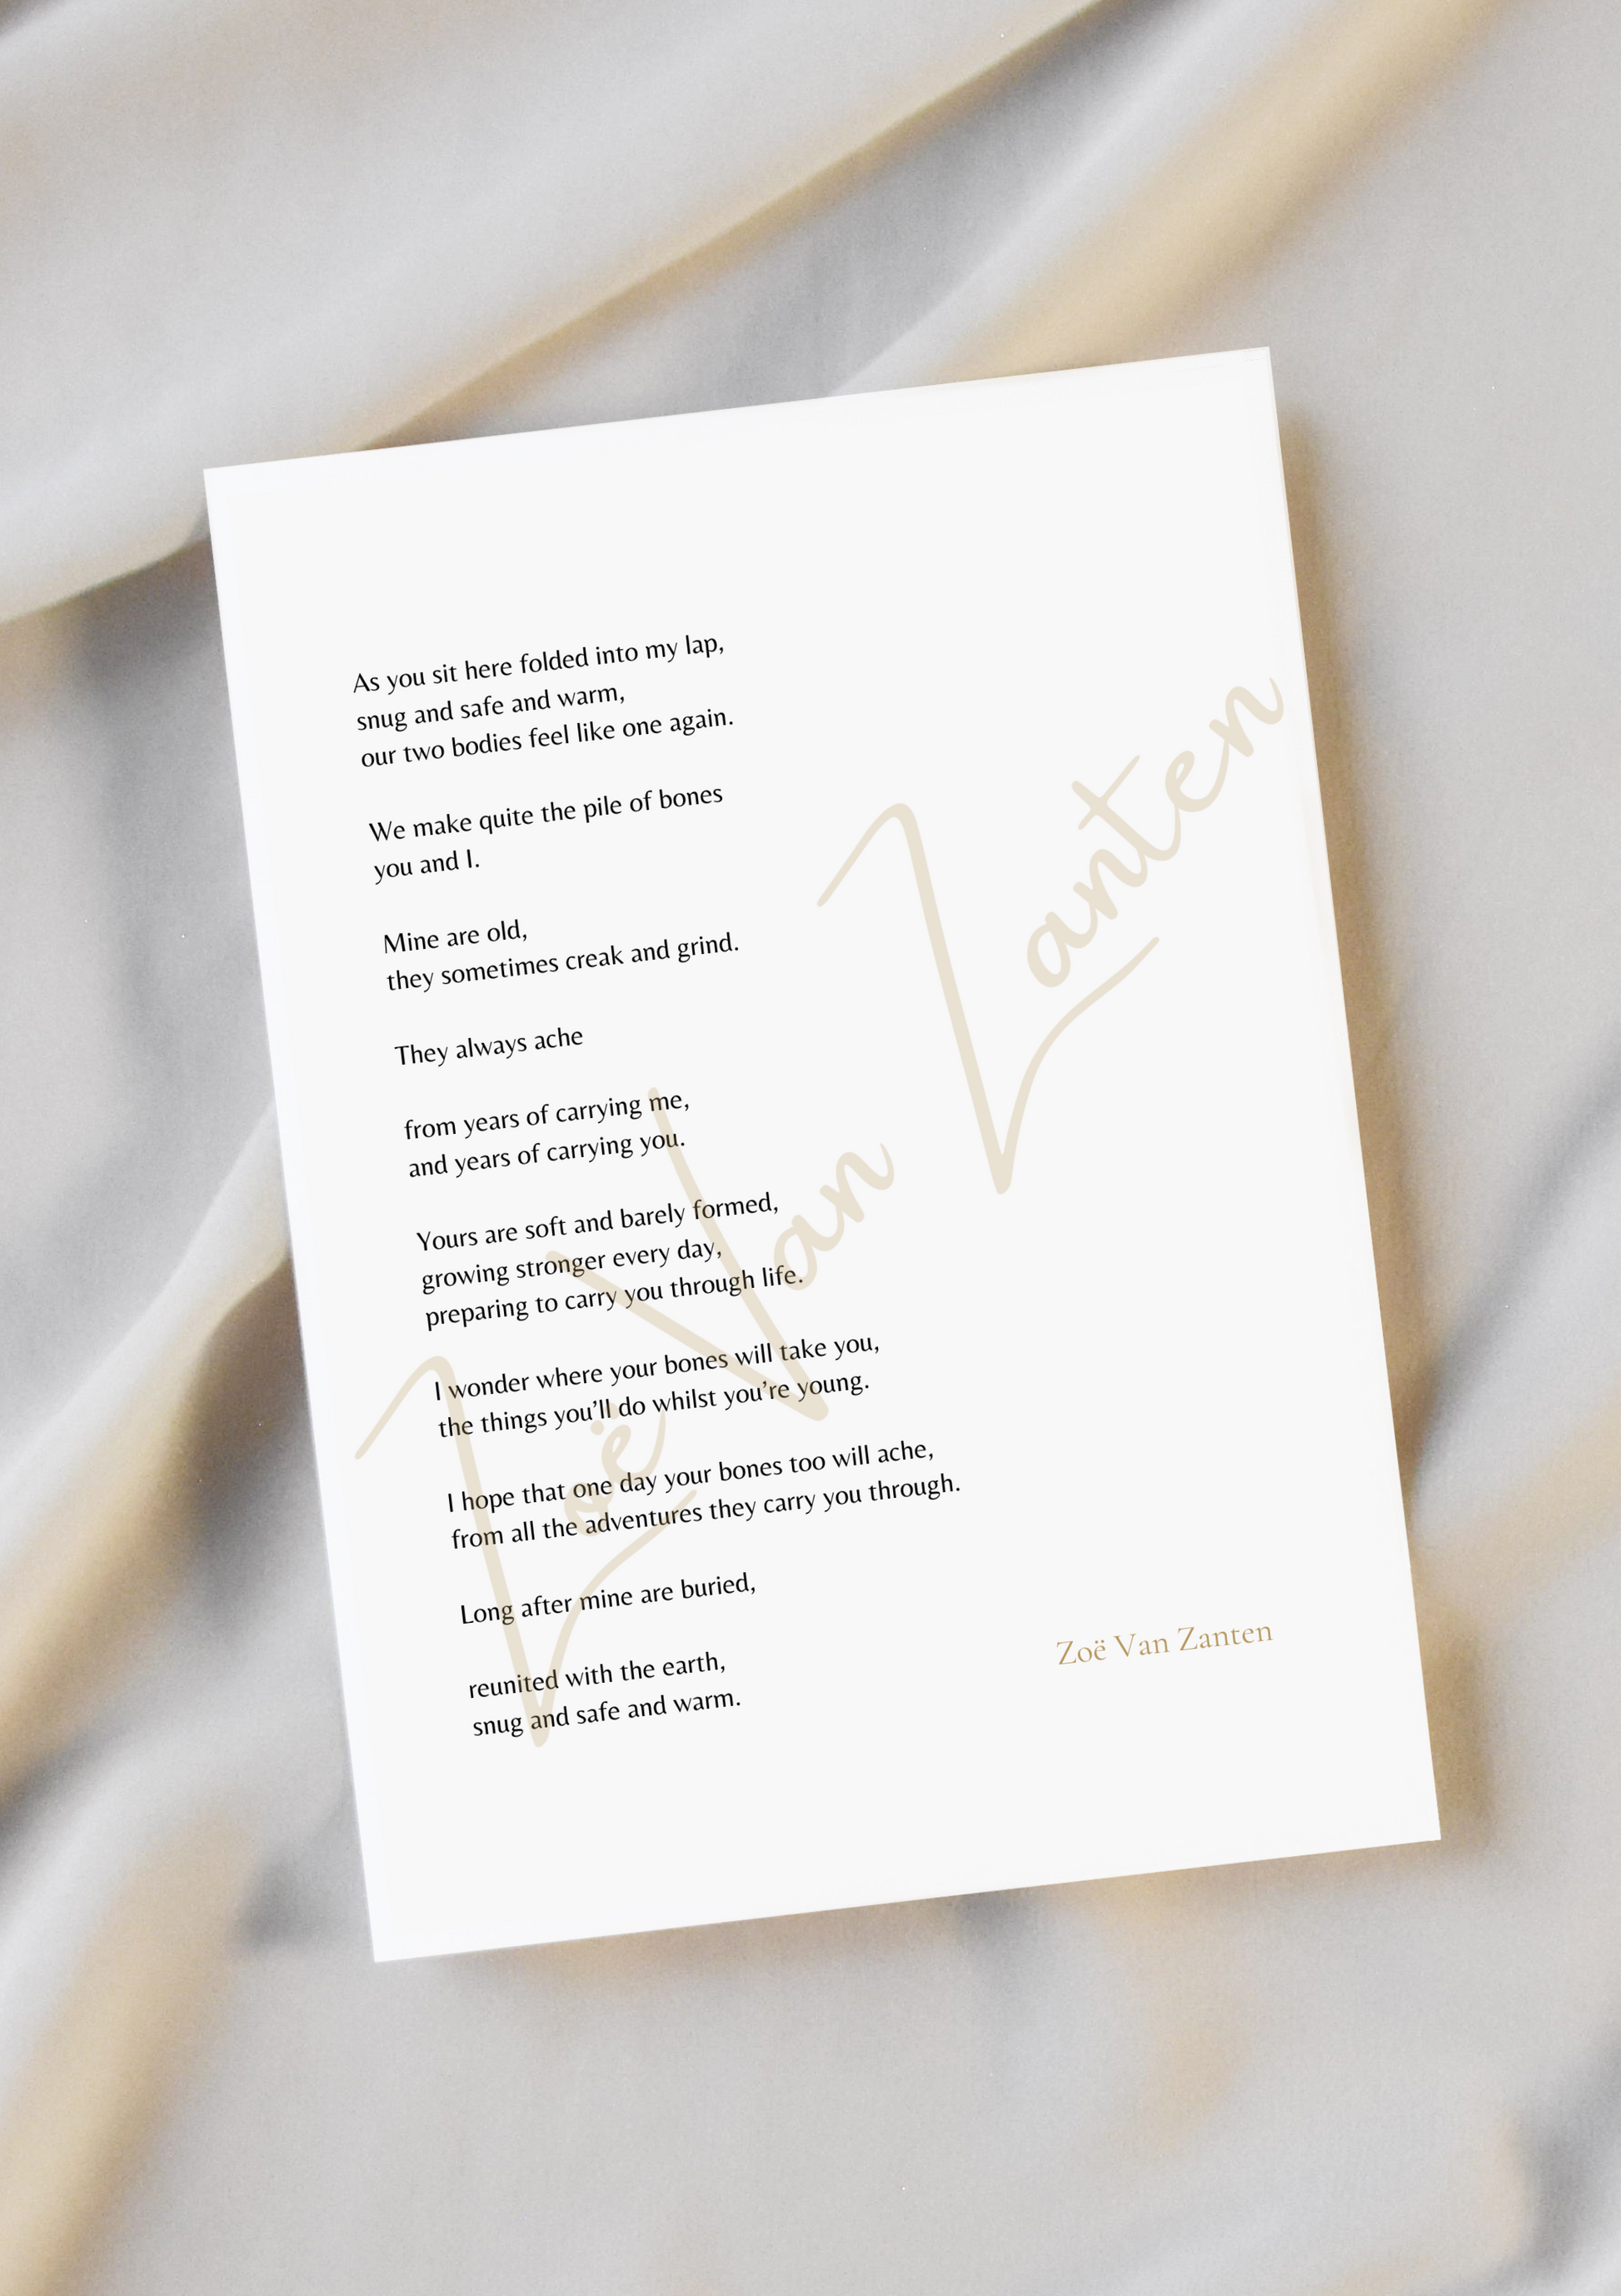 As you sit here folded into my lap,
snug and safe and warm,
our two bodies feel like one again.
We make quite the pile of bones
you and I.
Mine are old,
they sometimes creak and grind.
They always ache
from years of carrying me,
and years of carrying you.
Yours are soft and barely formed,
growing stronger every day,
preparing to carry you through life.
I wonder where your bones will take you,
the things you’ll do whilst you’re young.
I hope that one day your bones too will ache,
from all the adventures they carry you through.
Long after mine are buried,
reunited with the earth,
snug and safe and warm.
Zoë Van Zanten
Zoë Van Zanten